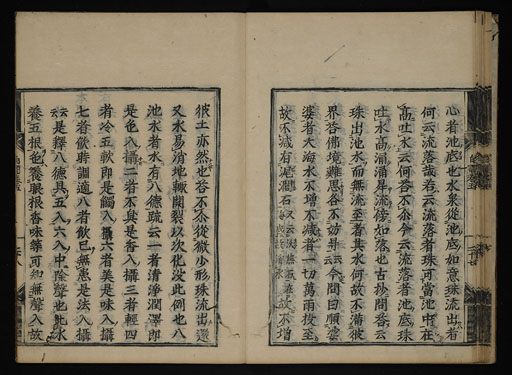 心者池底也水泉從池底如意珠流出者
何云流落哉若云流落者珠可當池中在
高吐水云何答不尒今云流落者池底珠
吐水高涌涌岸流傍如落也古抄問答云
珠出池水而無流至者其水何故不滿彼
界答佛境難思答不妨辛云今問曰頗婆
婆者大海水不增不減者一切萬雨投至
故不減有沃潤石又云沃焦故不增
彼土亦然也答不尒從微少形珠流出還
又水易消地輙開裂以次化没此例也八
池水者水有八德疏云一者清淨潤澤即
是色入攝二者不臭是香入攝三者輕四
者冷五軟即是觸入攝六者美是味入攝
七者飲時調適八者飲已無患是法入攝
云是釋八德具五入六入中除聲也此水
養五根色養眼根香味等可知無聲入故